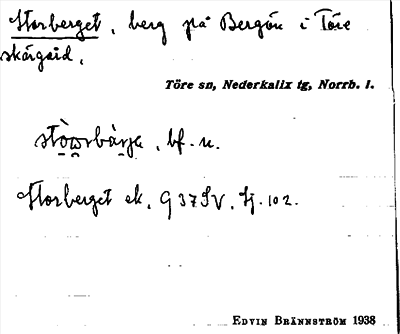 Storberget, berg på Bergön i Töre
skärgård.
Töre sn, Nederkalix tg, Norrb. l.
bf. n.
Storberget ek. G 37 SV. Hj. 102.
EDVIN BRÄNNSTRÖM 1938